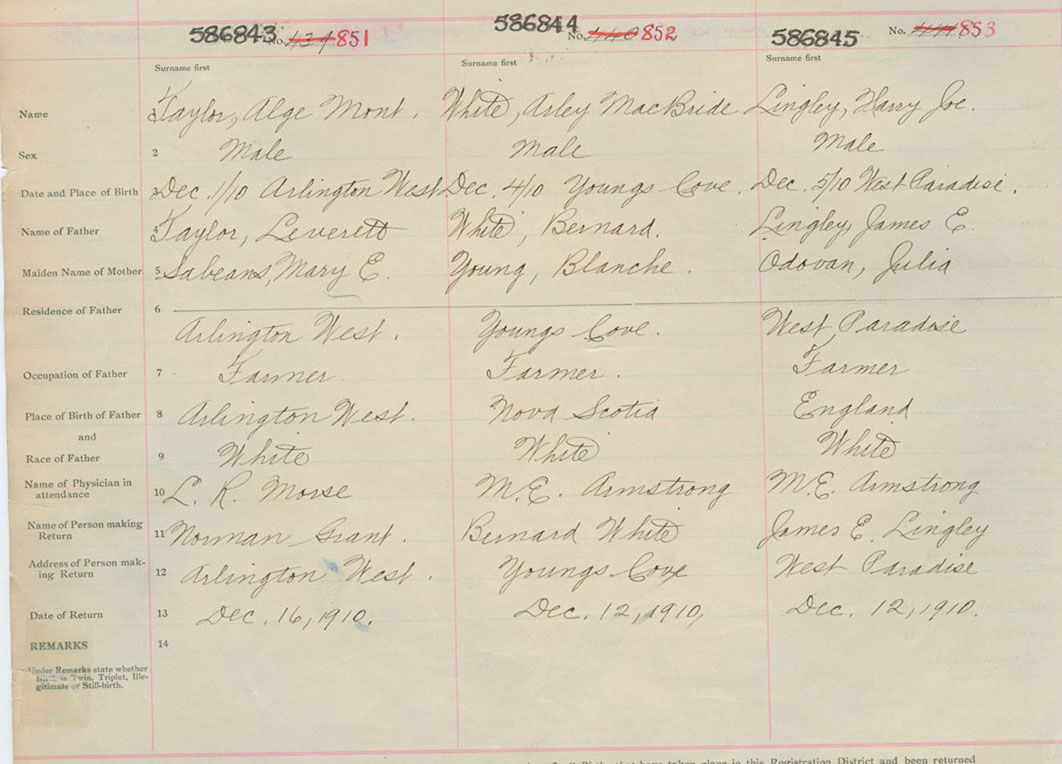 586843 No. 439 851 586844 No. 440 852 586845 No. 441 853
Surname first Surname first Surname first
Name 1 Taylor, Alge Mont. White, Arley MacBride Lingley, Harry Joe.
Sex 2 Male Male Male
Date and Place of Birth 3 Dec. 1/10 Arlington West. Dec. 4/10 Youngs Cove. Dec. 5/10 West Paradise.
Name of Father 4 Taylor, Leverett White, Bernard. Lingley, James E.
Maiden Name of Mother 5 Sabeans, Mary E. Young, Blanche. Odovan, Julia
Residence of Father 6 Arlington West. Youngs Cove. West Paradise
Occupation of Father 7 Farmer. Farmer. Farmer
Place of Birth of Father 8 Arlington West. Nova Scotia England
and
Race of Father 9 White White White
Name of Physician in
attendance 10 L. R. Morse M.E. Armstrong M.E. Armstrong
Name of Person making
Return 11 Norman Grant. Bernard White James E. Lingley
Address of Person mak-
ing Return 12 Arlington West. Youngs Cove West Paradise
Date of Return 13 Dec. 16, 1910. Dec. 12, 1910, Dec. 12, 1910.
REMARKS 14
Under Remarks state whether
birth is Twin, Triplet, Ille-
gitimate or Still-birth.
that have taken place in this Registration District and been returned